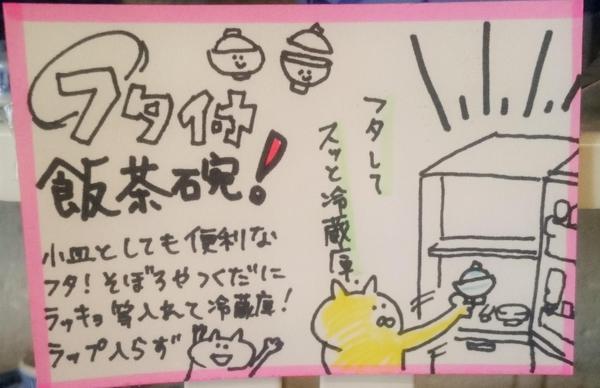 フタ付
飯茶碗!
小皿としても便利な
フタ!そぼろやつくだに
ラッキョ等入れて冷蔵庫!
ラップ入らず
フタして
スッと冷蔵庫